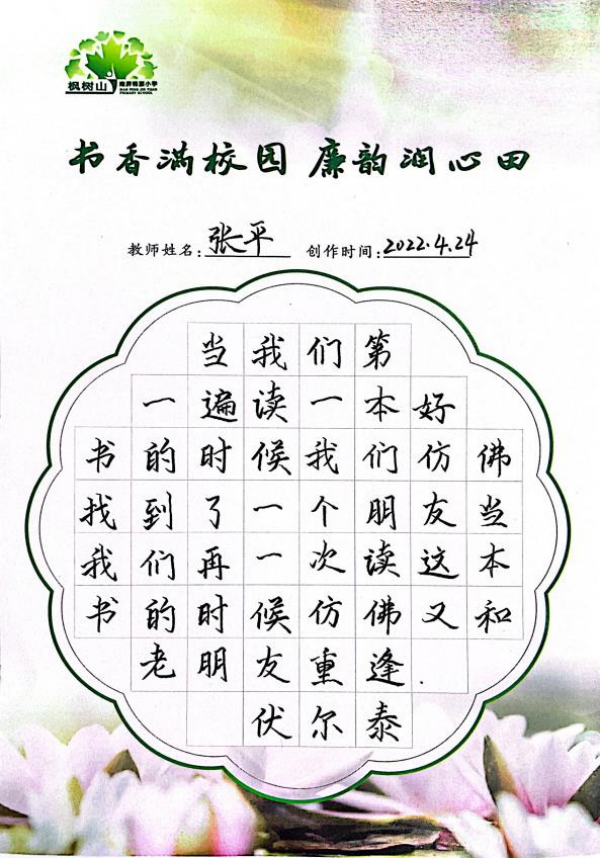 枫树山
PRIMARY SCHOOL
书香满校园 廉韵润心田
教师姓名: 张平 创作时间: 2022.4.24
当我们第
一遍读一本好
书的时候我们仿佛
找到了一个朋友当
我们再一次读这本
书的时候仿佛又和
老朋友重逢.
伏尔泰